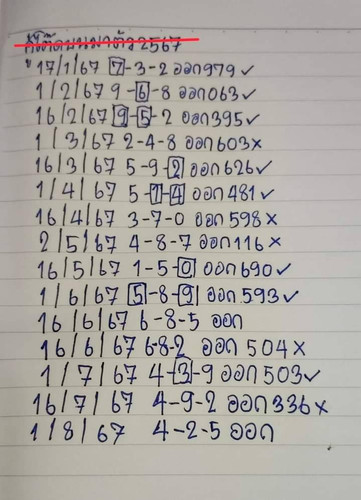 17/1/67 7-3-2 ออก979✓
1/2/67 9-6-8 ออก063✓
16/2/67 9-5-2 ออก395✓
1/3/67 2-4-8 ออก603×
16/3/67 5-9-2 ออก626✓
1/4/67 5-1-4 ออก481✓
16/4/67 3-7-0 ออก598×
2/5/67 4-8-7 ออก116×
16/5/67 1-5-0 ออก690✓
1/6/67 5-8-9 ออก593✓
16/6/67 6-8-5 ออก
16/6/67 6-8-2 ออก504×
1/7/67 4-3-9 ออก503✓
16/7/67 4-9-2 ออก336×
1/8/67 4-2-5 ออก